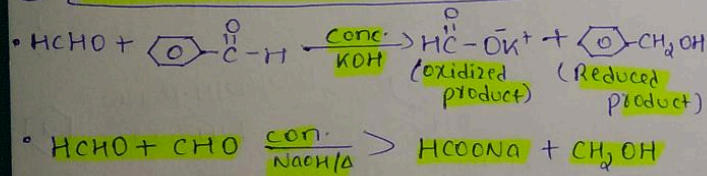 • HCHO + C₆H₅-C(=O)-H —conc. KOH→ HC(=O)-ŌK⁺ + C₆H₅-CH₂OH
(oxidized product) (Reduced product)
• HCHO + CHO —con. NaOH/Δ→ HCOONa + CH₂OH